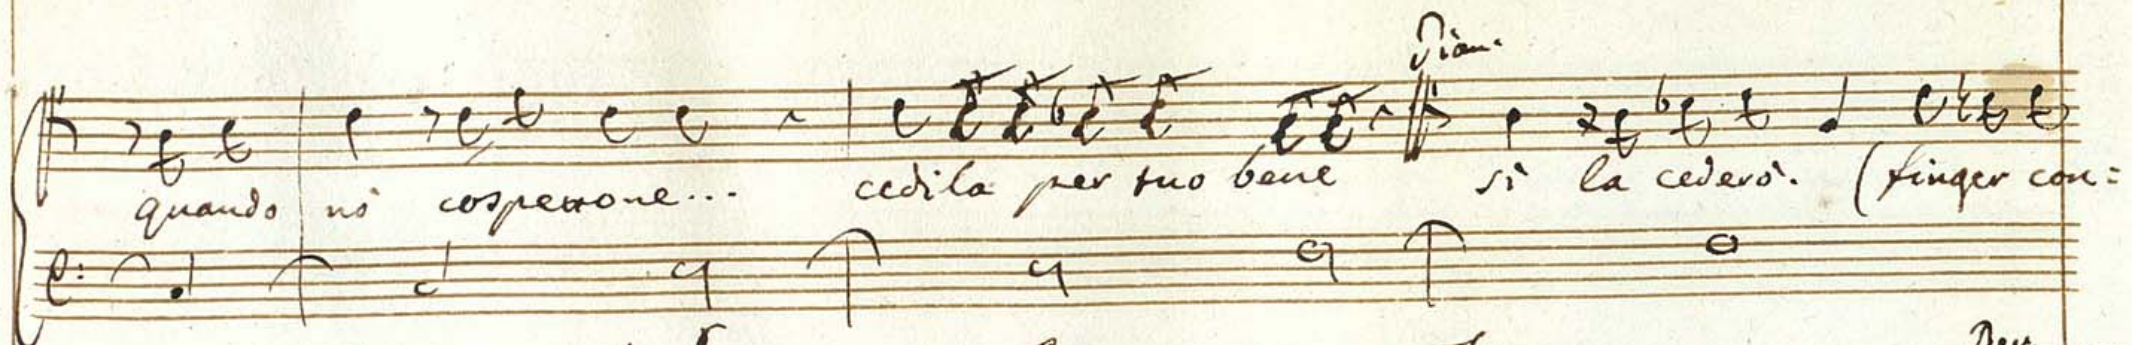 Pian.
quando nò cospettone... cedila per tuo bene sì la cederò. (finger con=